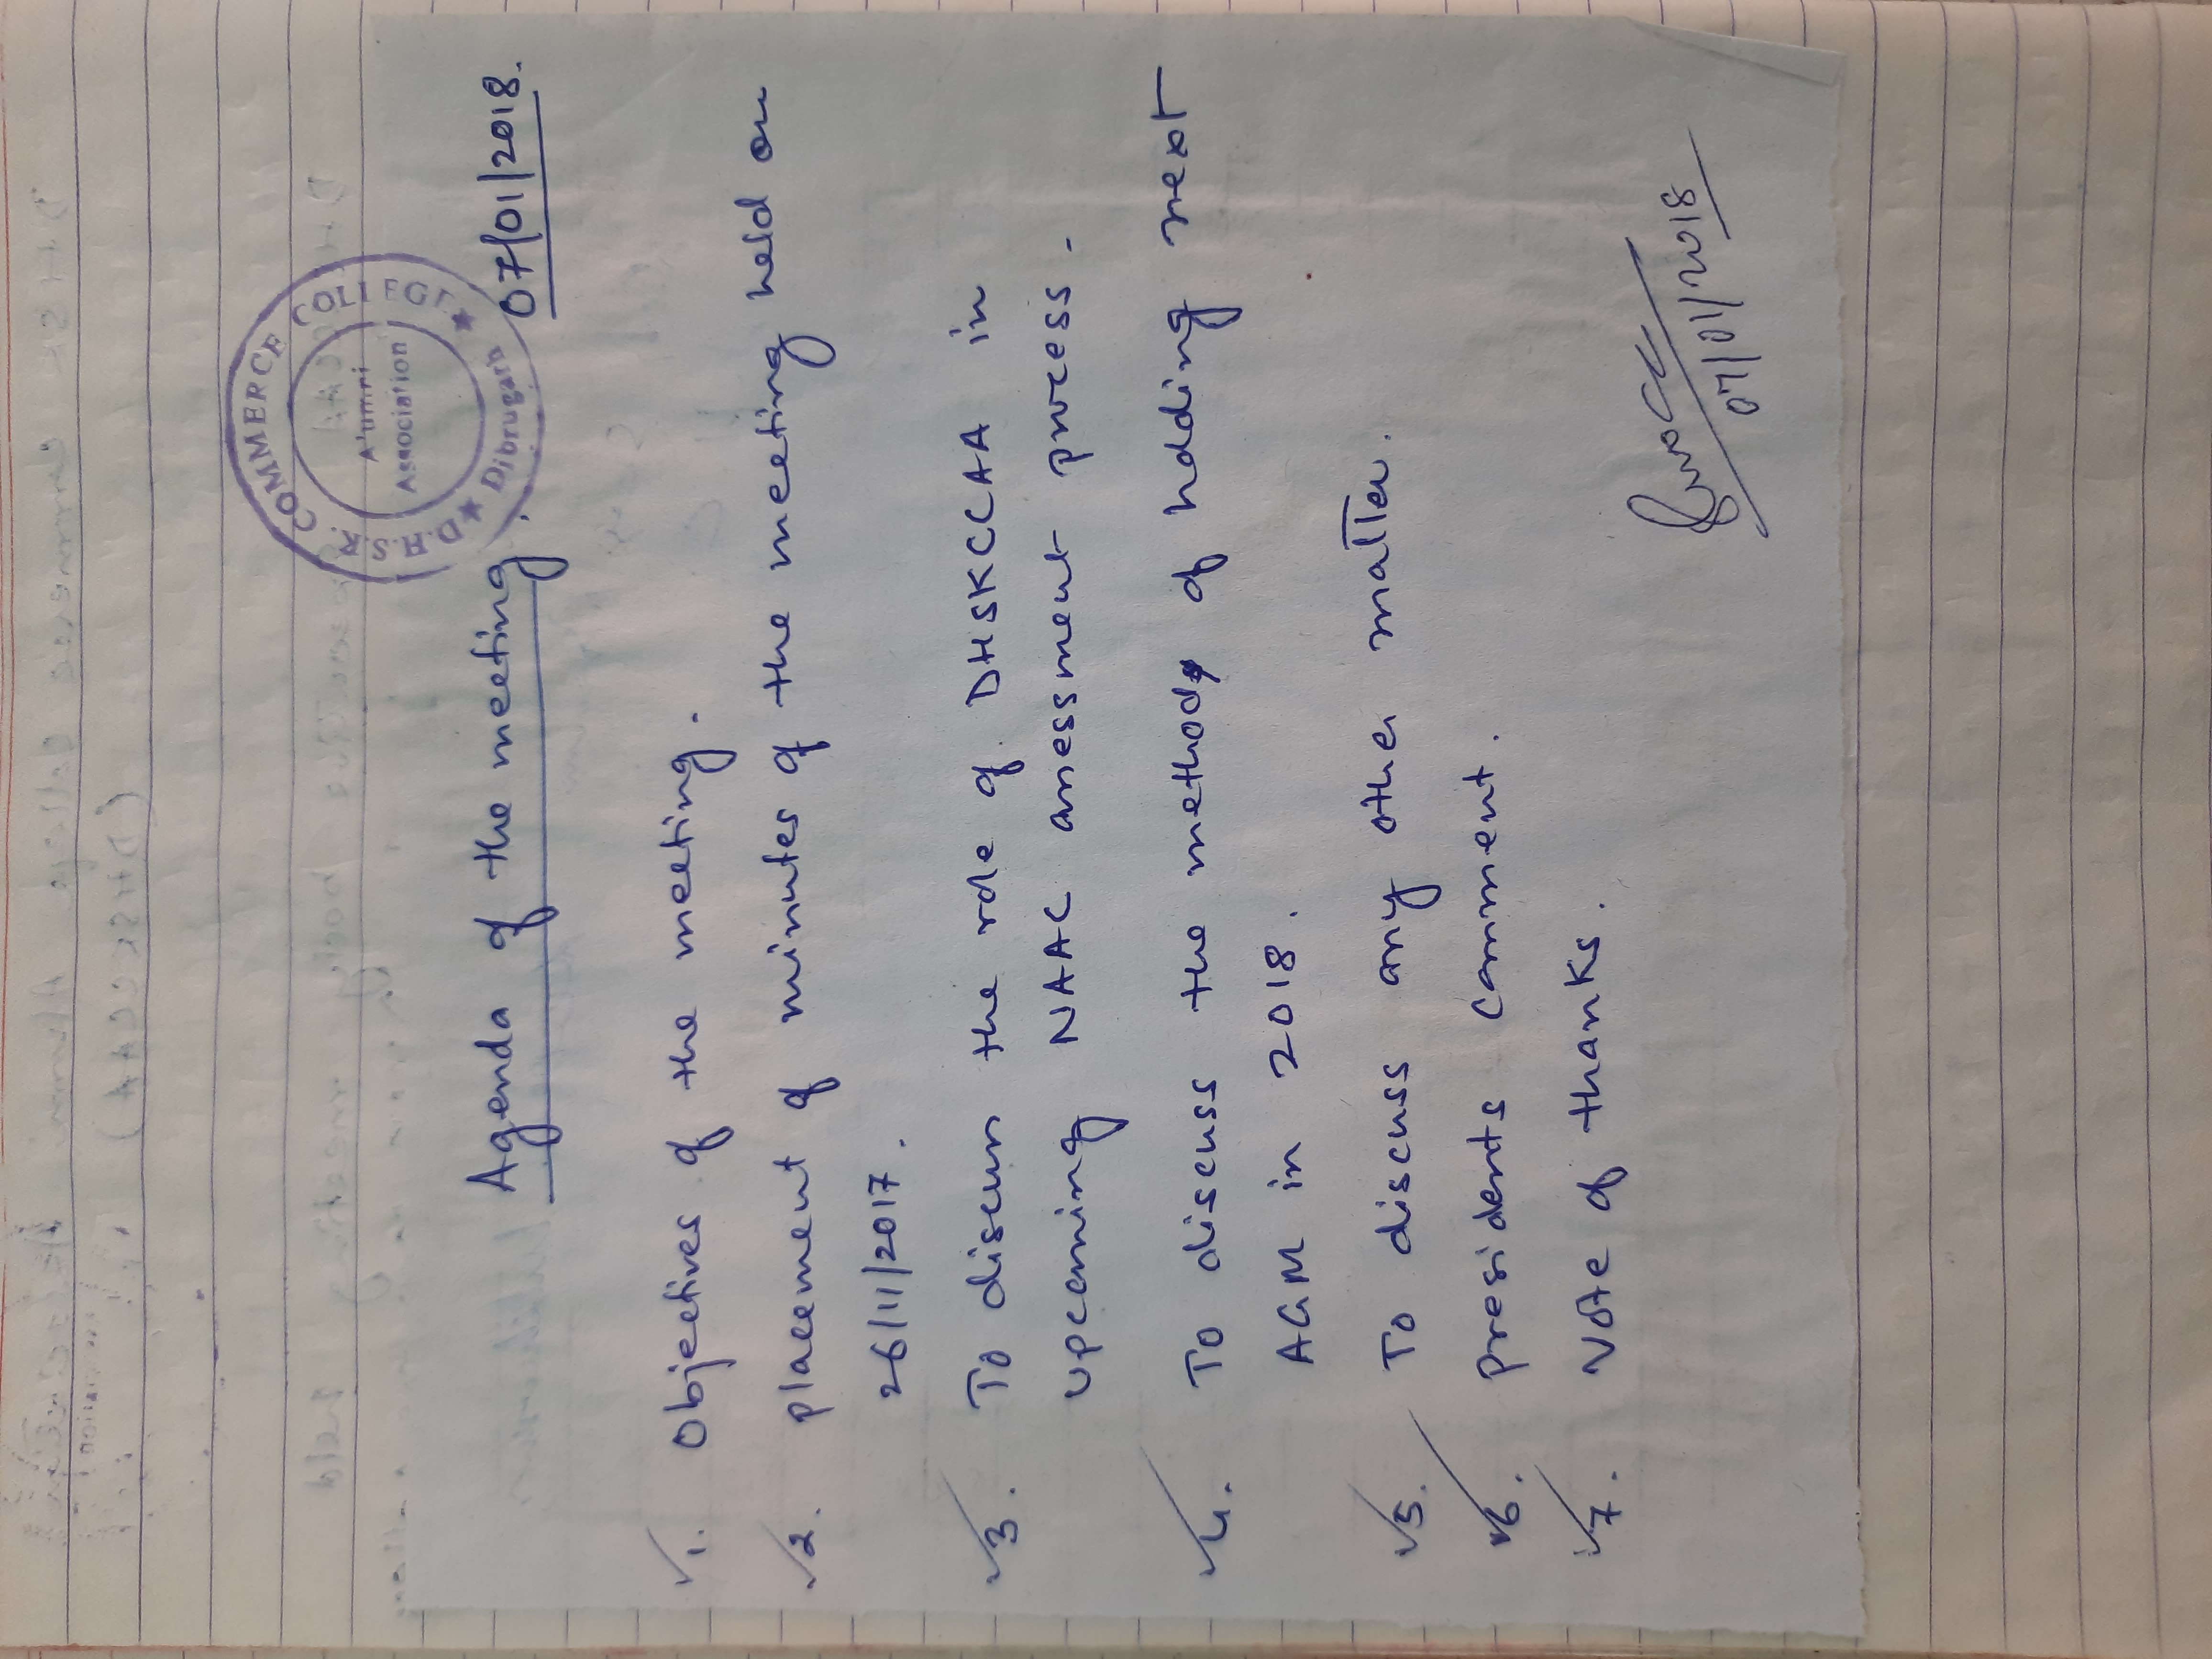 D.H.S.K. COMMERCE COLLEGE
Alumni
Association
★ Dibrugarh ★
Agenda of the meeting. 07/01/2018.
1. Objectives of the meeting.
2. placement of minutes of the meeting held on
26/11/2017.
3. To discuss the role of DHSKCCAA in
upcoming NAAC assessment process.
4. To discuss the method of holding next
AGM in 2018.
5. To discuss any other matter.
6. presidents comment.
7. vote of thanks.
07/01/2018